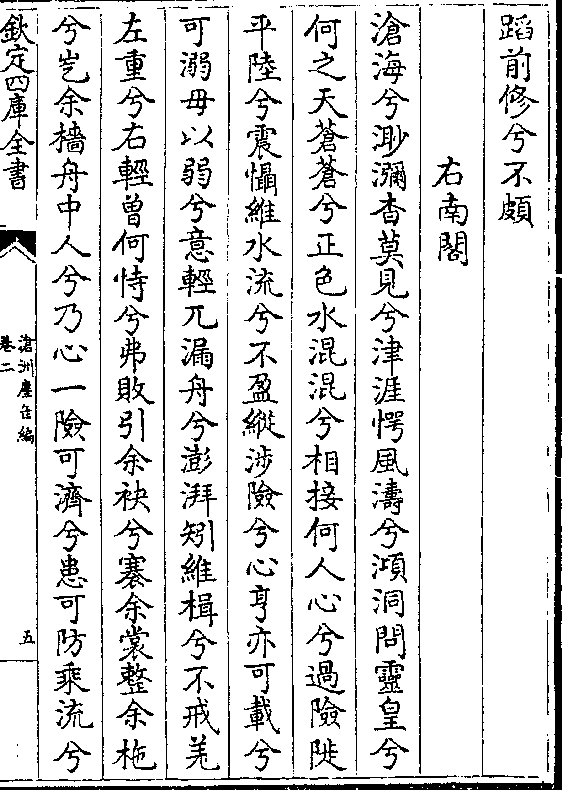 蹈前修兮不頗
右南閣
滄海兮渺瀰杳莫見兮津涯愕風濤兮澒洞問靈皇兮
何之天蒼蒼兮正色水混混兮相接何人心兮過險陡
平陸兮震懾維水流兮不盈縱涉險兮心亨亦可載兮
可溺毋以弱兮意輕兀漏舟兮澎湃矧維楫兮不戒羌
左重兮右輕曾何恃兮弗敗引余袂兮褰余裳整余柂
兮屹余檣舟中人兮乃心一險可濟兮患可防乘流兮
欽定四庫全書
滄洲塵缶編
卷二
五